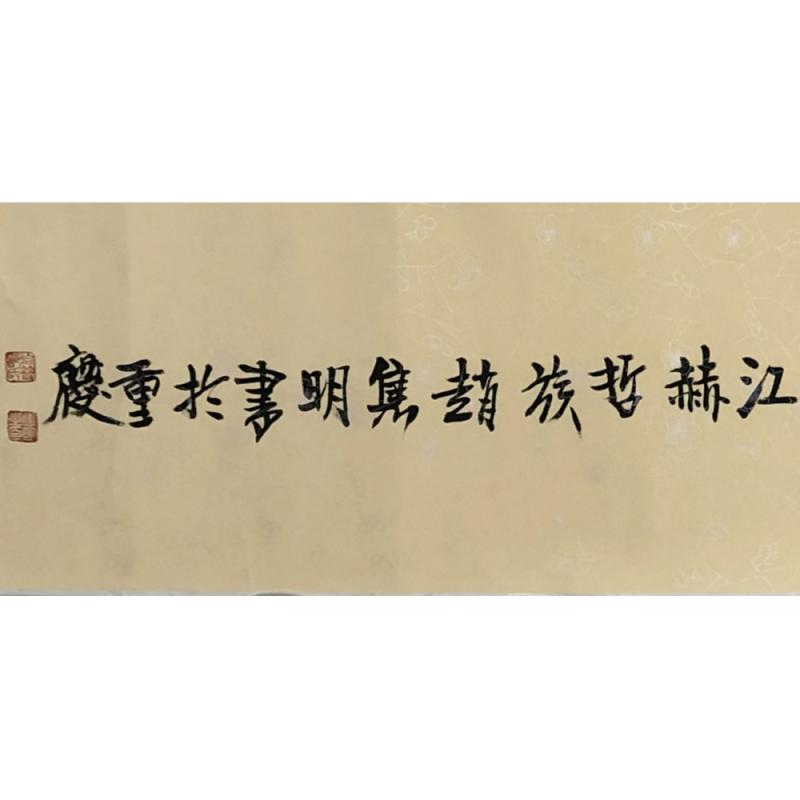 江赫哲族趙雋明書於重慶